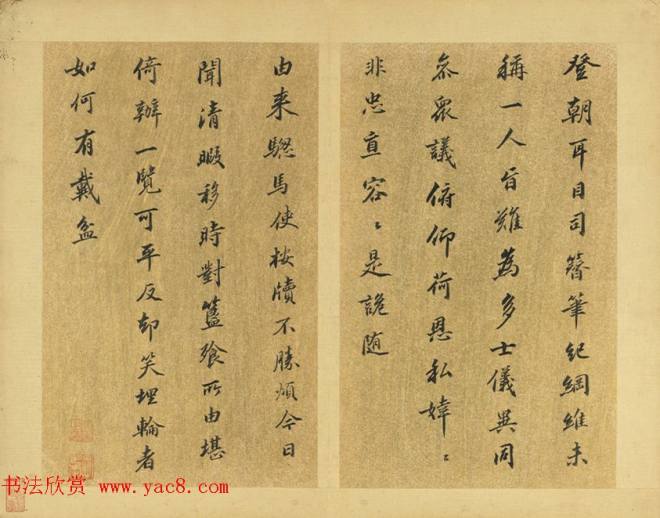 登朝耳目司簪筆紀綱維未
稱一人旨難為多士儀異同
衆議俯仰荷恩私婞〻
非忠直容〻是詭随
由来驄馬使按牘不勝煩今日
聞清暇移時對簋飱所由堪
倚辦一覽可平反却笑埋輪者
如何有戴盆
书法欣赏 www.yac8.com